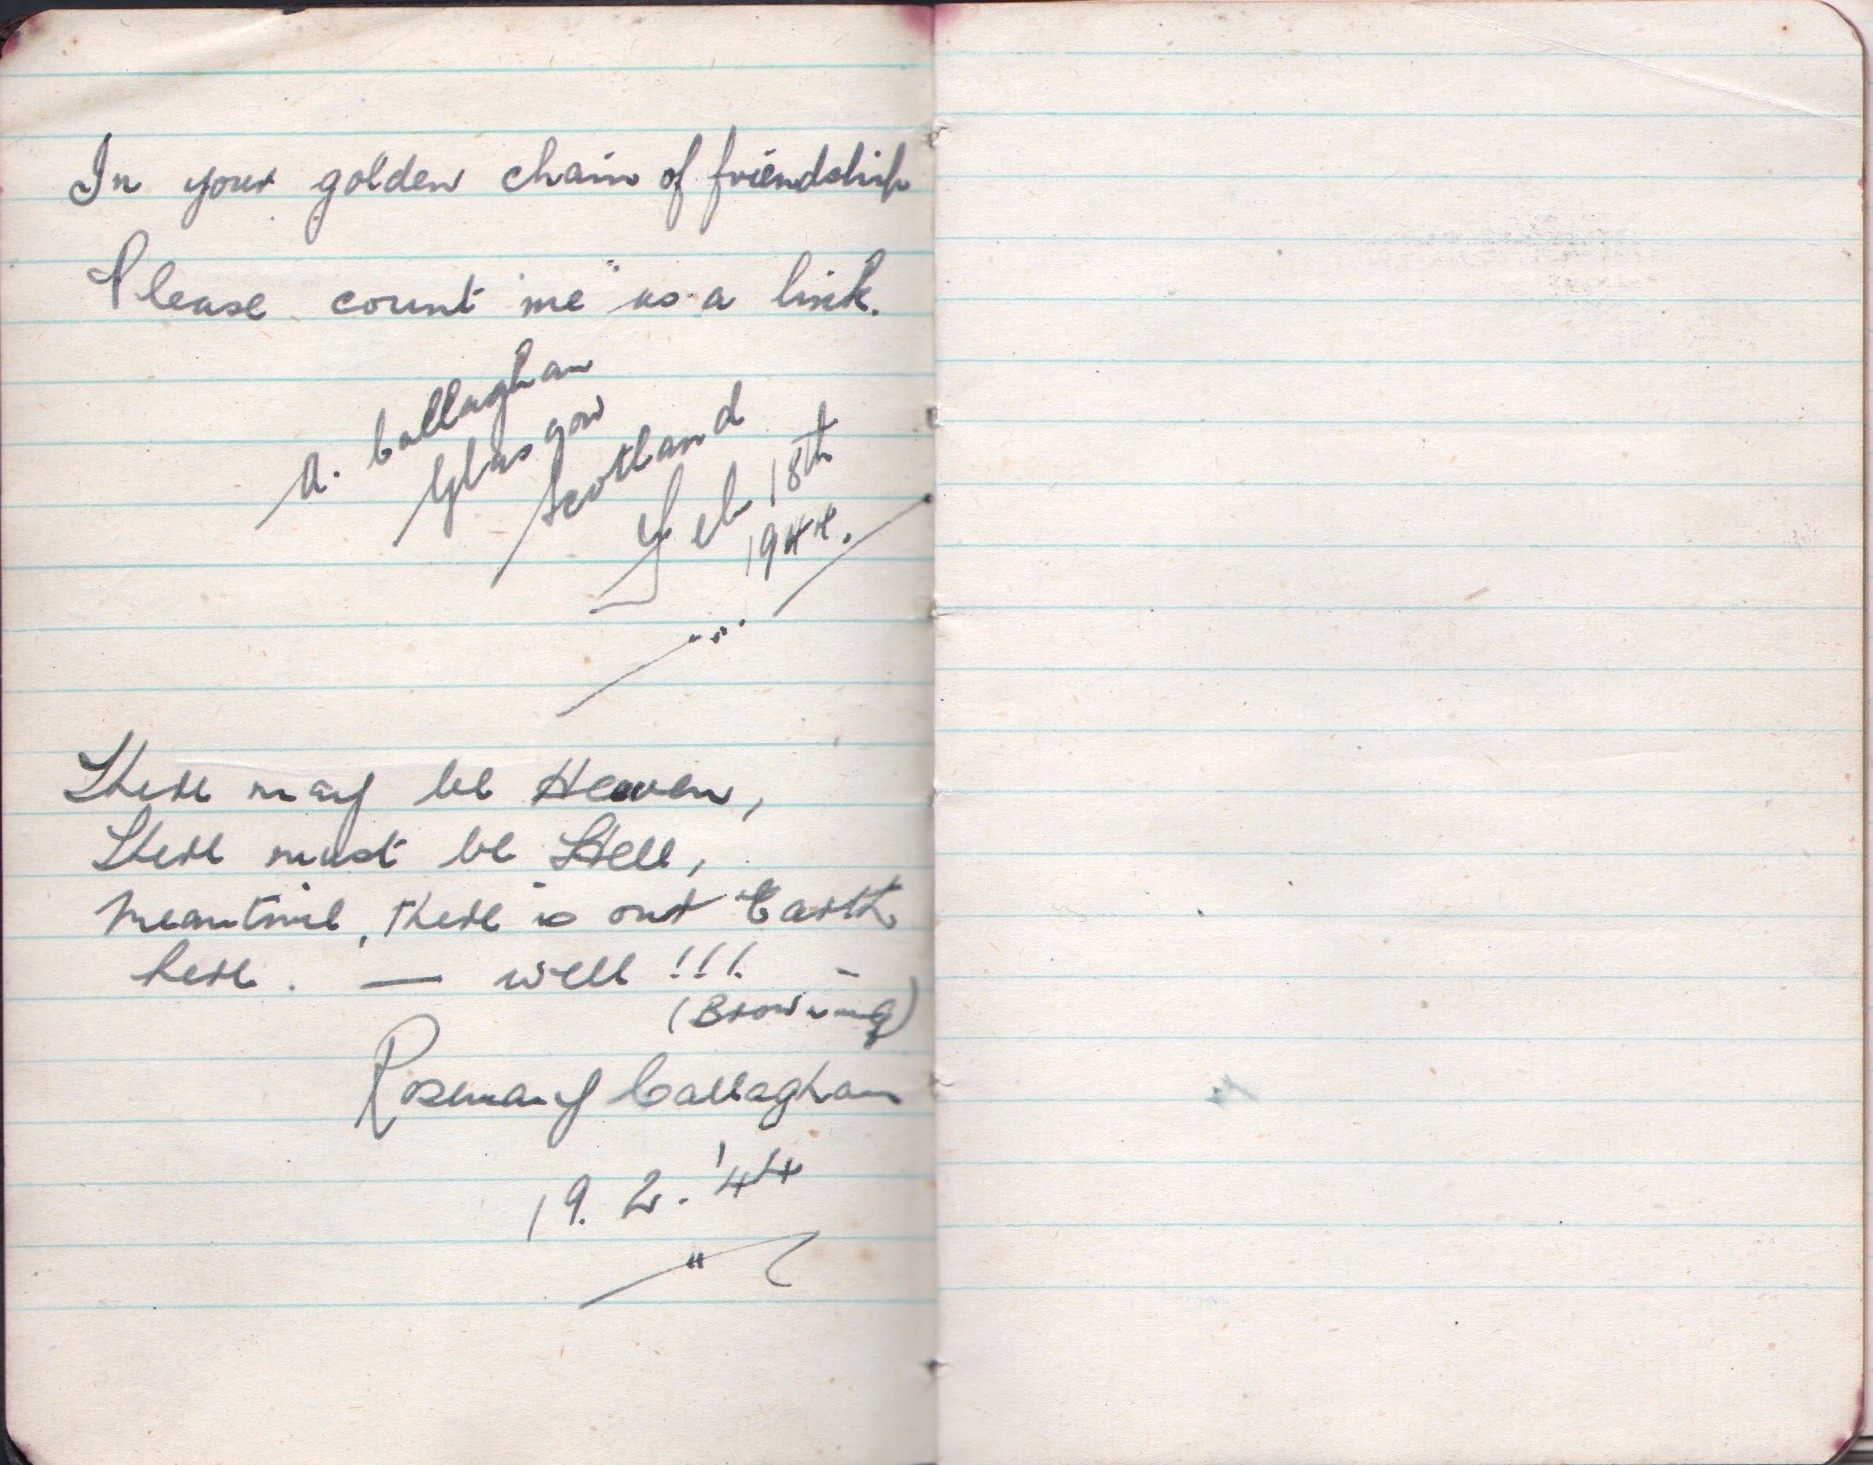 In your golden chain of friendship
Please count "me" as a link.
A. Callaghan
Glasgow
Scotland
Feb 18th
1944.
There may be Heaven,
There must be Hell,
Meantime, there is our Earth
here. — well !!!
(Browning)
Rosemary Callaghan
19. 2. '44